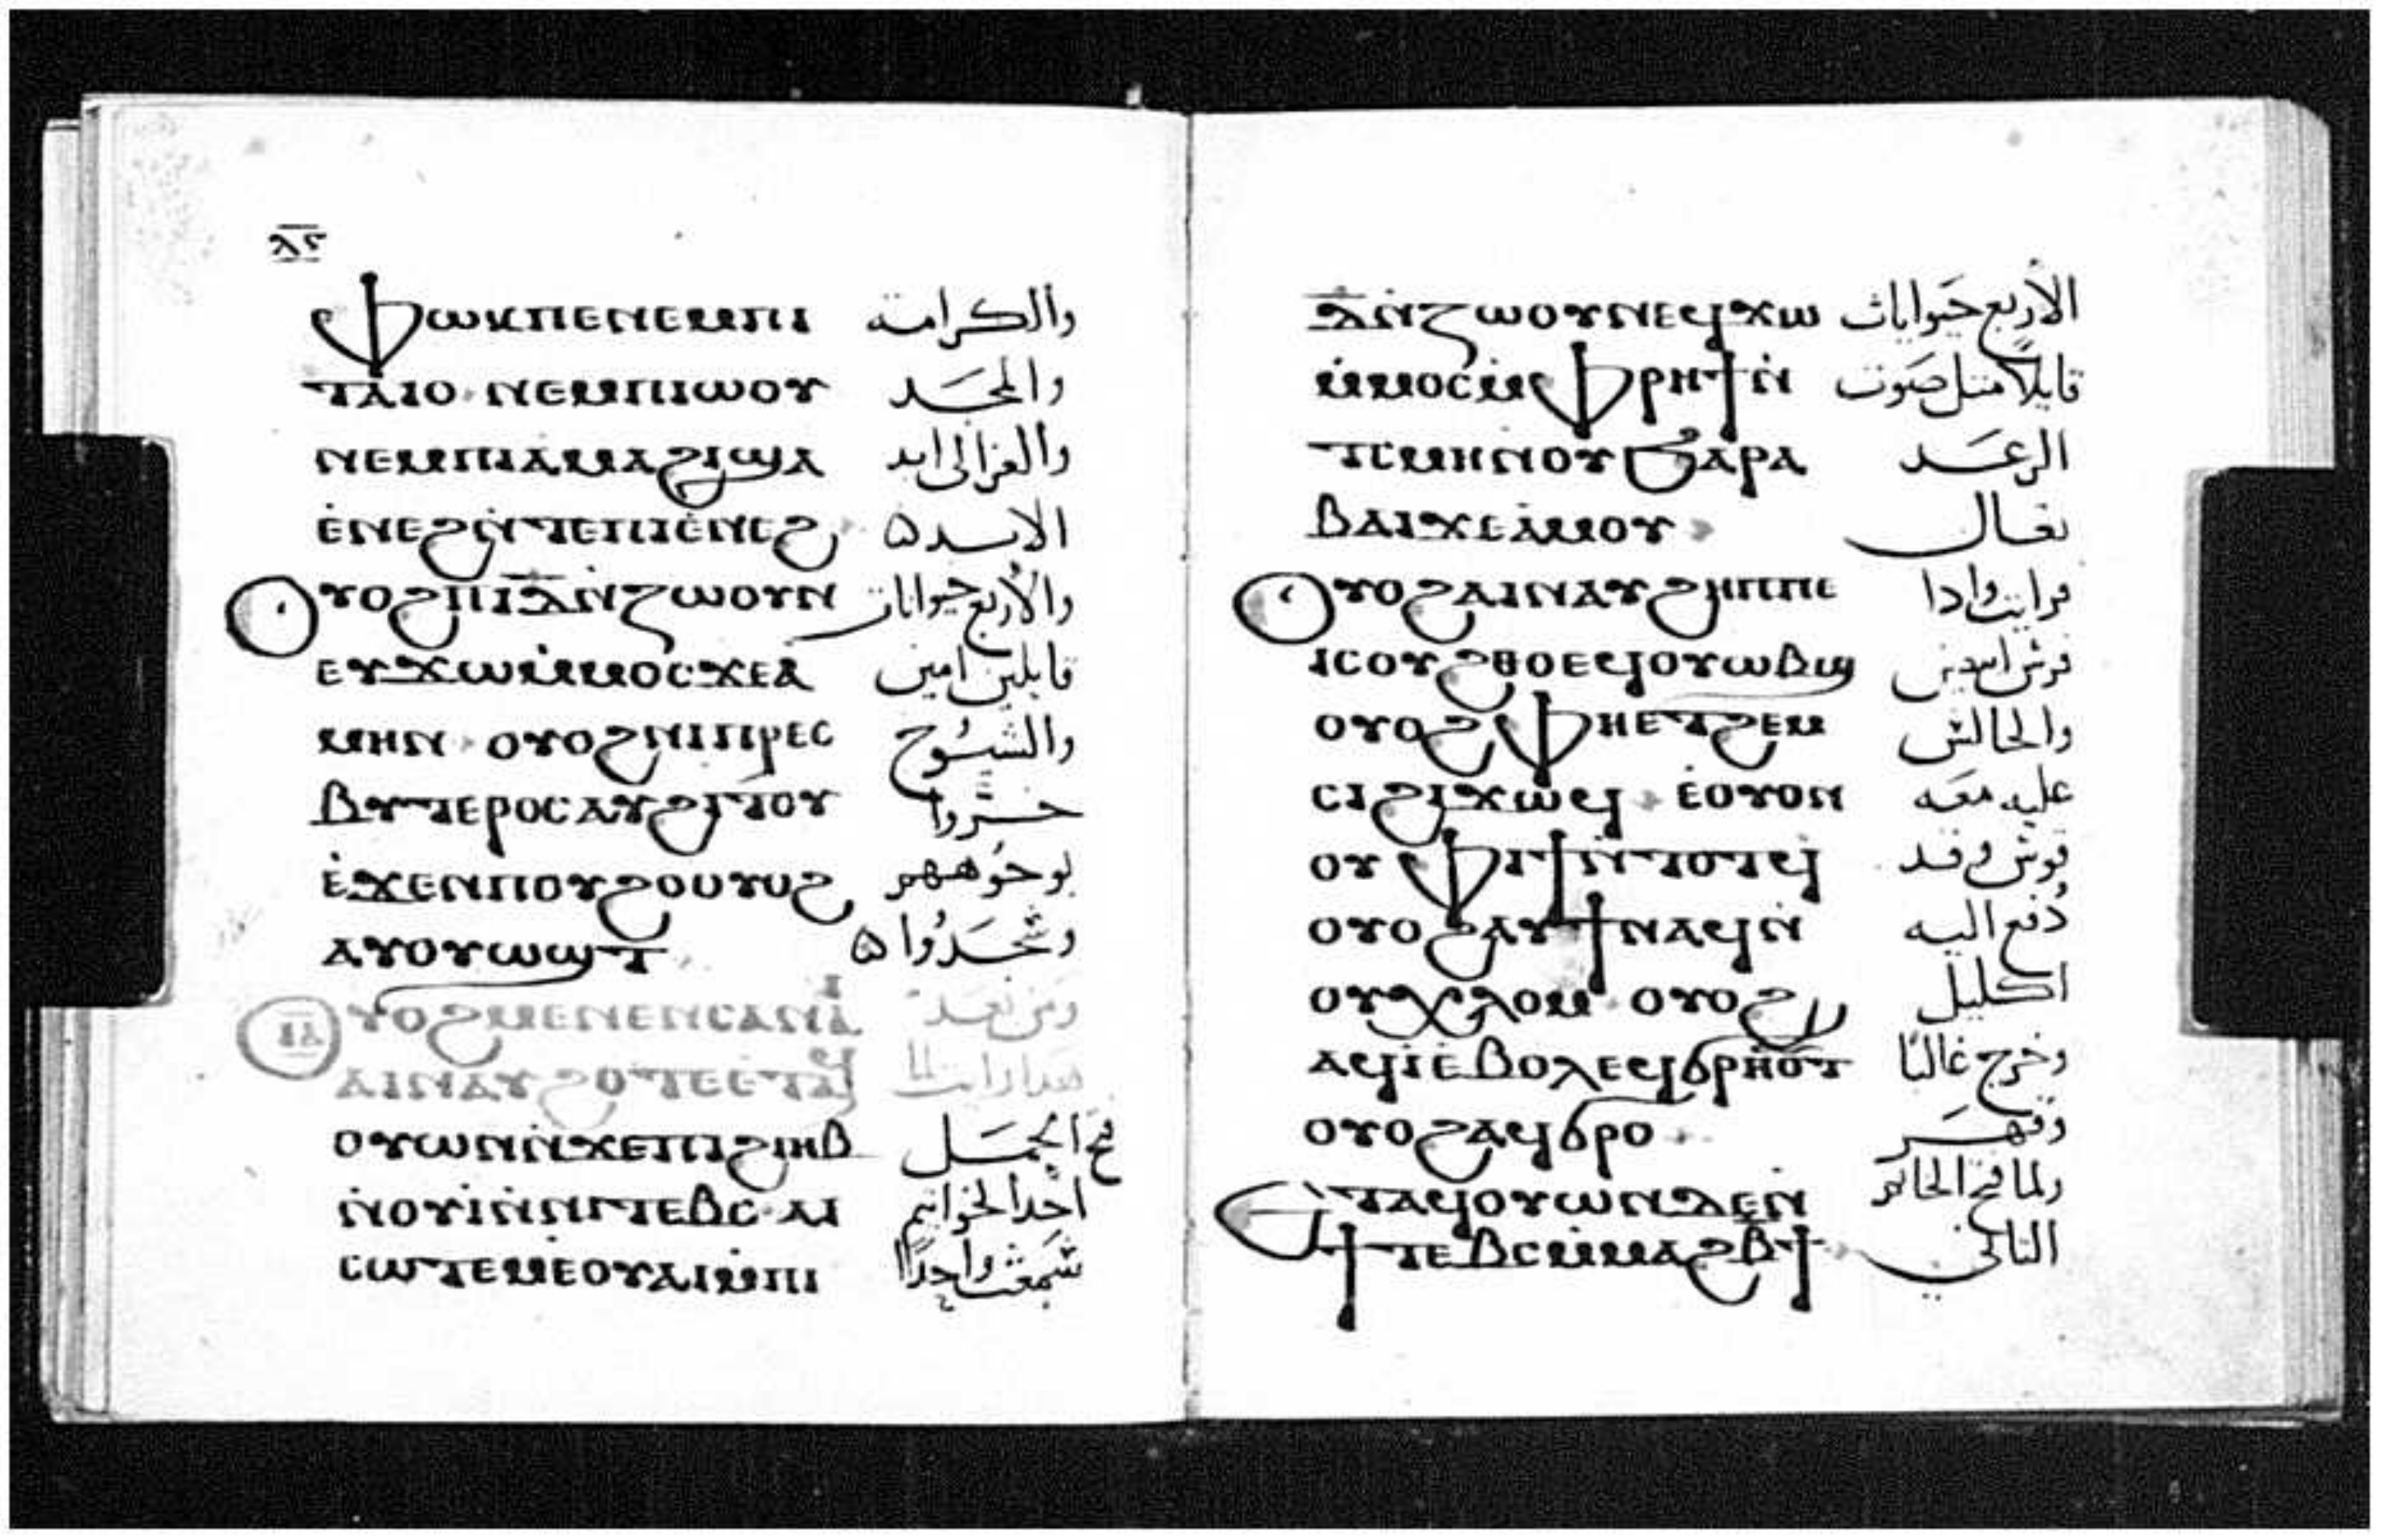 ⲗ̅ⲋ̅
Ⲫⲱⲕⲡⲉⲛⲉⲙⲡⲓ والكرامة
ⲧⲁⲓⲟ ⲛⲉⲙⲡⲓⲱⲟⲩ والمجد
ⲛⲉⲙⲡⲓⲁⲙⲁϩⲓϣⲁ والعز الى ابد
ⲉ̀ⲛⲉϩⲛ̀ⲧⲉⲡⲓⲉ̀ⲛⲉϩ الابد
Ⲟⲩⲟϩⲡⲓⲇ̅ⲛ̀ⲍⲱⲟⲩⲛ والأربع حيوانات
ⲉⲩϫⲱⲙ̀ⲙⲟⲥϫⲉⲁ̀ قايلين امين
ⲙⲏⲛ ⲟⲩⲟϩⲛⲓⲡⲣⲉⲥ والشيوخ
ⲃⲩⲧⲉⲣⲟⲥⲁⲩϩⲓⲧⲟⲩ خروا
ⲉ̀ϫⲉⲛⲡⲟⲩϩⲟⲟⲩⲟϩ بوجوههم
ⲁⲩⲟⲩⲱϣⲧ وسجدوا
Ⲟⲩⲟϩⲙⲉⲛⲉⲛⲥⲁⲛⲁⲓ ومن بعد
ⲁⲓⲛⲁⲩ ϩⲟⲧⲉⲉⲧⲁϥ هدا رايت لما
ⲟⲩⲱⲛⲛ̀ϫⲉⲡⲓϩⲓⲏⲃ فتح الحمل
ⲛ̀ⲟⲩⲓ̀ⲛ̀ⲛⲓⲧⲉⲃⲥ ⲁⲓ احد الخواتيم
ⲥⲱⲧⲉⲙⲉ̀ⲟⲩⲁⲓⲙ̀ⲡⲓ سمعت واحدا
ⲇ̅ⲛ̀ⲍⲱⲟⲩⲛⲉϥϫⲱ الأربع حيوانات
ⲙ̀ⲙⲟⲥⲙ̀ⲫⲣⲏϯⲛ̀ قايلا مثل صوت
ⲧⲥⲙⲏⲛⲟⲩϦⲁⲣⲁ الرعد
ⲃⲁⲓϫⲉⲁ̀ⲙⲟⲩ تعال
Ⲟⲩⲟϩⲁⲓⲛⲁⲩϩⲏⲡⲡⲉ فرايت وادا
ⲓⲥⲟⲩϩⲑⲟⲉϥⲟⲩⲱⲃϣ فرس ابيض
ⲟⲩⲟϩⲫⲏⲉⲧϩⲉⲙ والجالس
ⲥⲓϩⲓϫⲱϥ ⲉ̀ⲟⲩⲟⲛ عليه معه
ⲟⲩⲫⲓϯⲛ̀ⲧⲟⲧϥ قوس وقد
ⲟⲩⲟϩⲁⲩϯⲛⲁϥⲛ̀ دفع اليه
ⲟⲩⲭⲗⲟⲙ ⲟⲩⲟϩ اكليل
ⲁϥⲓ̀ⲉ̀ⲃⲟⲗⲉϥϭⲣⲏⲟⲩⲧ وخرج غالبًا
ⲟⲩⲟϩⲁϥϭⲣⲟ وقهر
Ⲉⲧⲁϥⲟⲩⲱⲛⲇⲉⲛ̀ ولما فتح الخاتم
ϯⲧⲉⲃⲥⲙ̀ⲙⲁϩⲃ̅ϯ الثاني